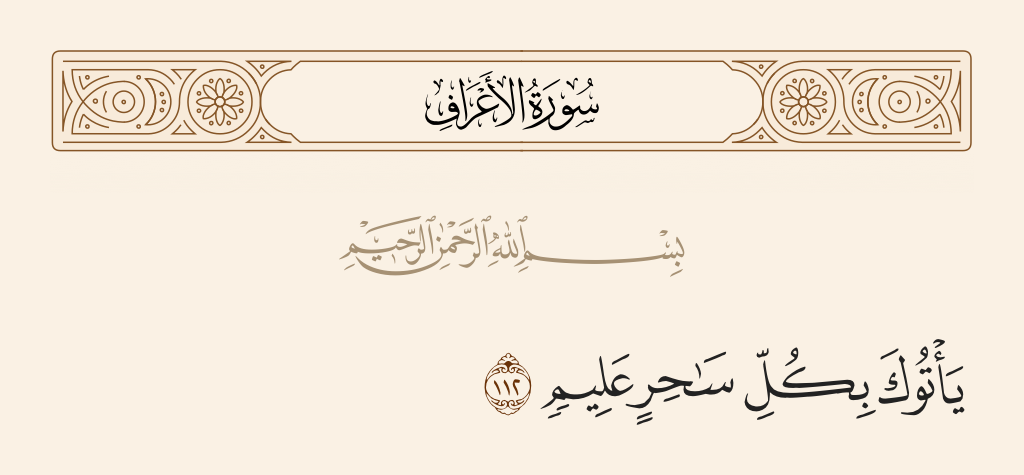 سُورَةُ الأَعْرَافِ
بِسْمِ ٱللَّهِ ٱلرَّحْمَٰنِ ٱلرَّحِيمِ
يَأْتُوكَ بِكُلِّ سَـٰحِرٍ عَلِيمٍ ١١٢